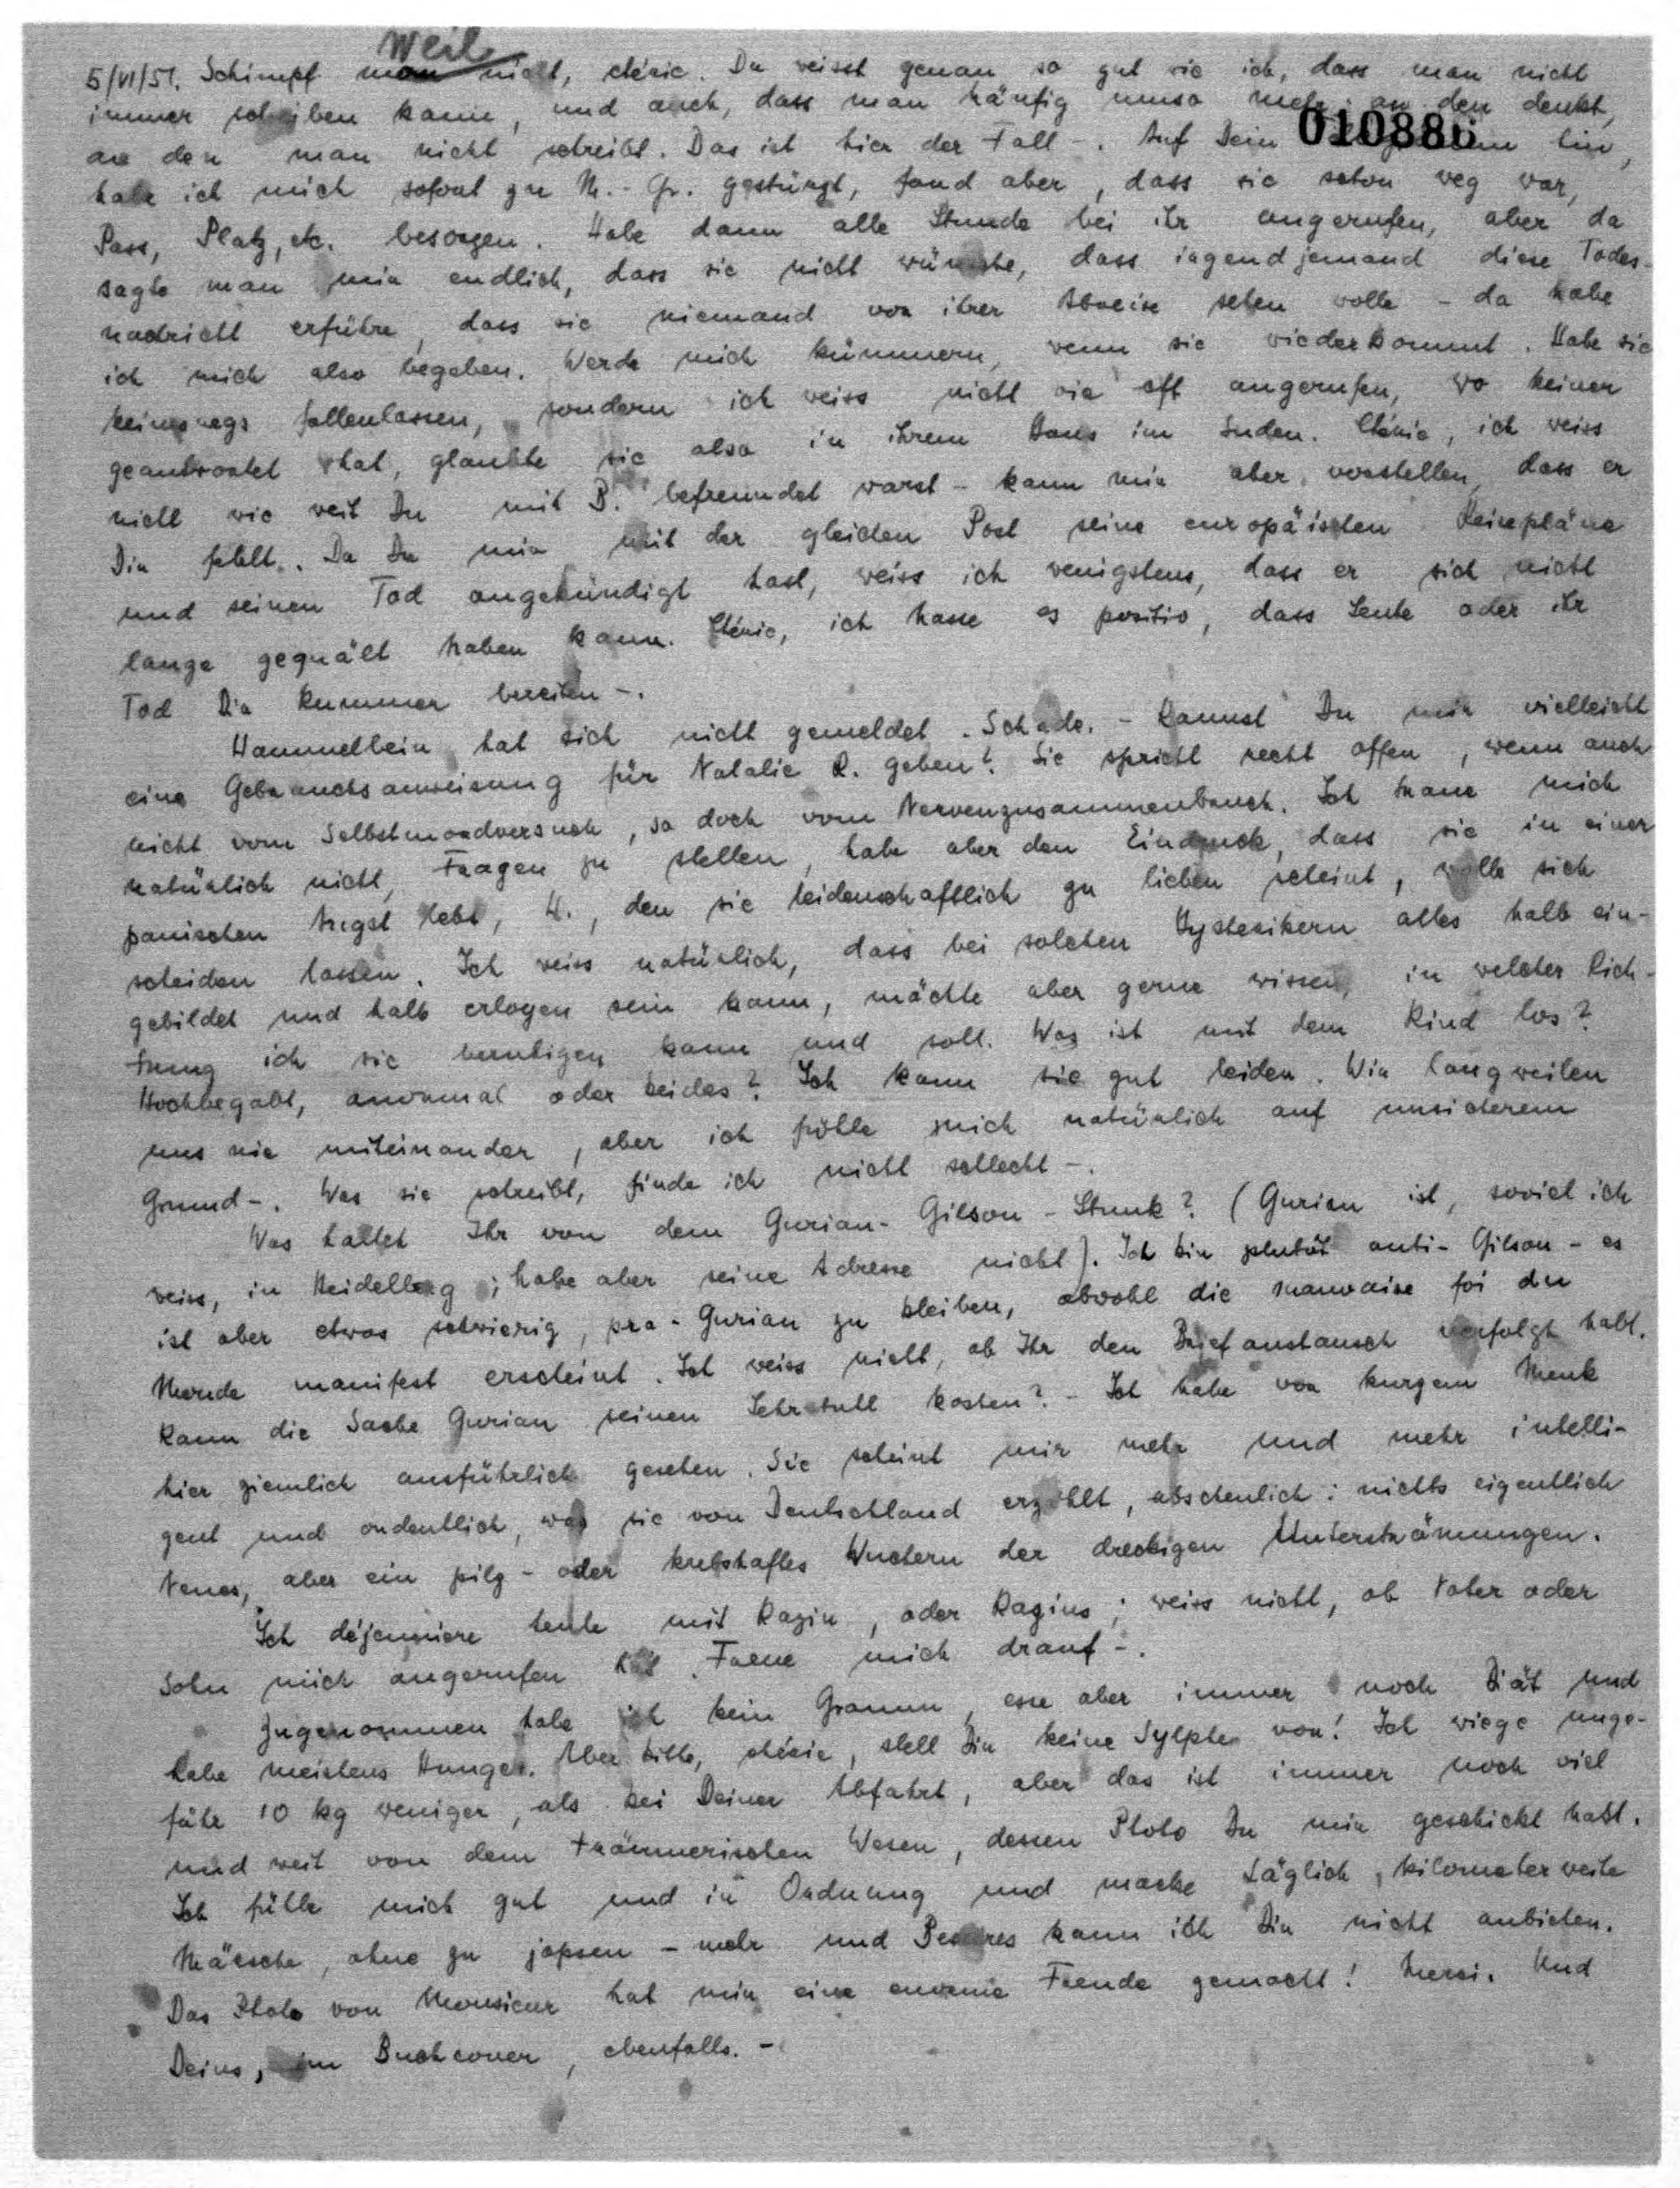 Weil
5/VI/51. Schimpf man nicht, chérie. Du weisst genau so gut wie ich, dass man nicht
immer schreiben kann, und auch, dass man häufig umso mehr an den denkt,
010886
an den man nicht schreibt. Das ist hier der Fall -. Auf Dein hin,
habe ich mich sofort zu M.-Gr. gestürzt, fand aber, dass sie schon weg war,
Pass, Platz, etc. besorgen. Habe dann alle Stunde bei ihr angerufen, aber da
sagte man mir endlich, dass sie nicht wünsche, dass irgend jemand diese Todes-
nachricht erführe, dass sie niemand vor ihrer Abreise sehen wolle - da habe
ich mich also begeben. Werde mich kümmern, wenn sie wiederkommt. Habe sie
keineswegs fallenlassen, sondern ich weiss nicht wie oft angerufen, wo keiner
geantwortet hat, glaubte sie also in ihrem Haus im Süden. Chérie, ich weiss
nicht wie weit Du mit B. befreundet warst - kann mir aber vorstellen, dass er
Dir fehlt. Da Du mir mit der gleichen Post seine europäischen Reisepläne
und seinen Tod angekündigt hast, weiss ich wenigstens, dass er sich nicht
lange gequält haben kann. Chérie, ich hasse es positiv, dass Leute oder ihr
Tod Dir Kummer bereiten -.
Hammelbein hat sich nicht gemeldet. Schade. - Kannst Du mir vielleicht
eine Gebrauchsanweisung für Natalie R. geben? Sie spricht recht offen, wenn auch
nicht vom Selbstmordversuch, so doch vom Nervenzusammenbruch. Ich traue mich
natürlich nicht, Fragen zu stellen, habe aber den Eindruck, dass sie in einer
panischen Angst lebt, H., den sie leidenschaftlich zu lieben scheint, wolle sich
scheiden lassen. Ich weiss natürlich, dass bei solchen Hysterikern alles halb ein-
gebildet und halb erlogen sein kann, möchte aber gerne wissen, in welcher Rich-
tung ich sie beruhigen kann und soll. Was ist mit dem Kind los?
Hochbegabt, anormal oder beides? Ich kann sie gut leiden. Wir langweilen
uns nie miteinander, aber ich fühle mich natürlich auf unsicherem
Grund -. Was sie schreibt, finde ich nicht schlecht -.
Was haltet Ihr von dem Gurian-Gilson-Stunk? (Gurian ist, soviel ich
weiss, in Heidelberg; habe aber seine Adresse nicht). Ich bin plutôt anti-Gilson - es
ist aber etwas schwierig, pro-Gurian zu bleiben, obwohl die mauvaise foi du
Monde manifest erscheint. Ich weiss nicht, ob Ihr den Briefaustausch verfolgt habt.
Kann die Sache Gurian seinen Lehrstuhl kosten? - Ich habe vor kurzem Menk
hier ziemlich ausführlich gesehen. Sie scheint mir mehr und mehr intelli-
gent und ordentlich, was sie von Deutschland erzählt, abscheulich: nichts eigentlich
Neues, aber ein pilz- oder krebshaftes Wuchern der dreckigen Unterströmungen.
Ich déjeuniere heute mit Kazin, oder Kazins; weiss nicht, ob Vater oder
Sohn mich angerufen hat. Freue mich drauf -.
Zugenommen habe ich kein Gramm, esse aber immer noch Diät und
habe meistens Hunger. Aber bitte, chérie, stell Dir keine Sylphe vor! Ich wiege unge-
fähr 10 kg weniger, als bei Deiner Abfahrt, aber das ist immer noch viel
und weit von dem träumerischen Wesen, dessen Photo Du mir geschickt hast.
Ich fühle mich gut und in Ordnung und mache täglich kilometerweite
Märsche, ohne zu japsen - mehr und Besseres kann ich Dir nicht anbieten.
Das Photo von Monsieur hat mir eine enorme Freude gemacht! Merci. Und
Deins, im Buchcover, ebenfalls. -